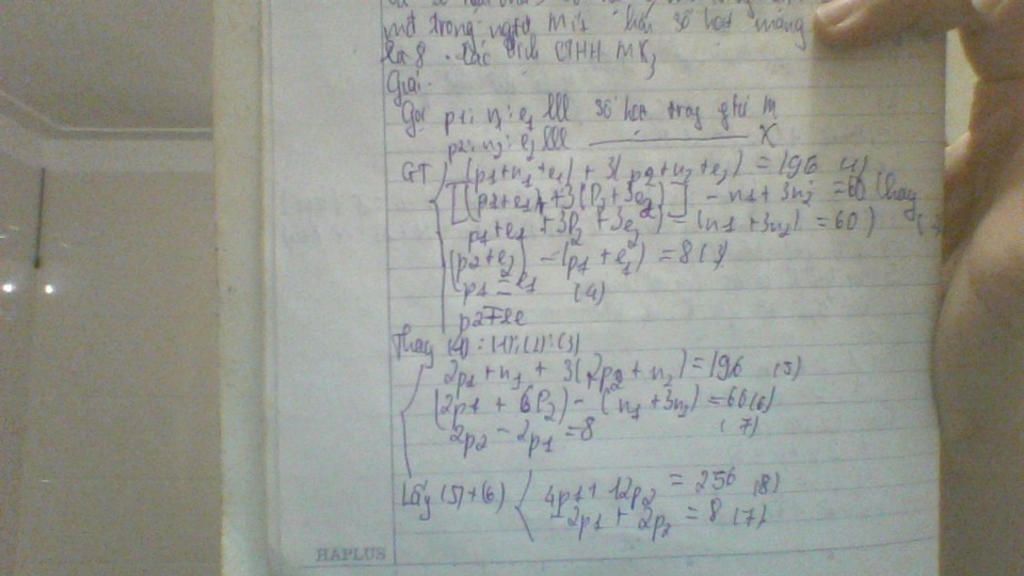 một trong ngtử M it hơn số hạt mang
là 8. Xác định CTHH MX3
Giải.
Gọi p1; n1; e1 lll số hạt trong gtử M
p2; n2; e2 lll ——— X
GT (p1+n1+e1) + 3(p2+n2+e2) = 196 (1)
[(p1+e1) + 3(P2+3e2)] - n1 + 3n2 = 60 (hay
p1+e1 + 3P2 + 3e2) - (n1+3n2) = 60)
(p2+e2) - (p1+e1) = 8 (3)
p1 = e1 (4)
Thay (4): (1); (2); (3)
2p1 + n1 + 3(2p2 + n2) = 196 (5)
(2p1 + 6P2) - (n1 + 3n2) = 60 (6)
2p2 - 2p1 = 8 (7)
Lấy (5)+(6) 4p1 + 12p2 = 256 (8)
-2p1 + 2p2 = 8 (7)
HAPLUS